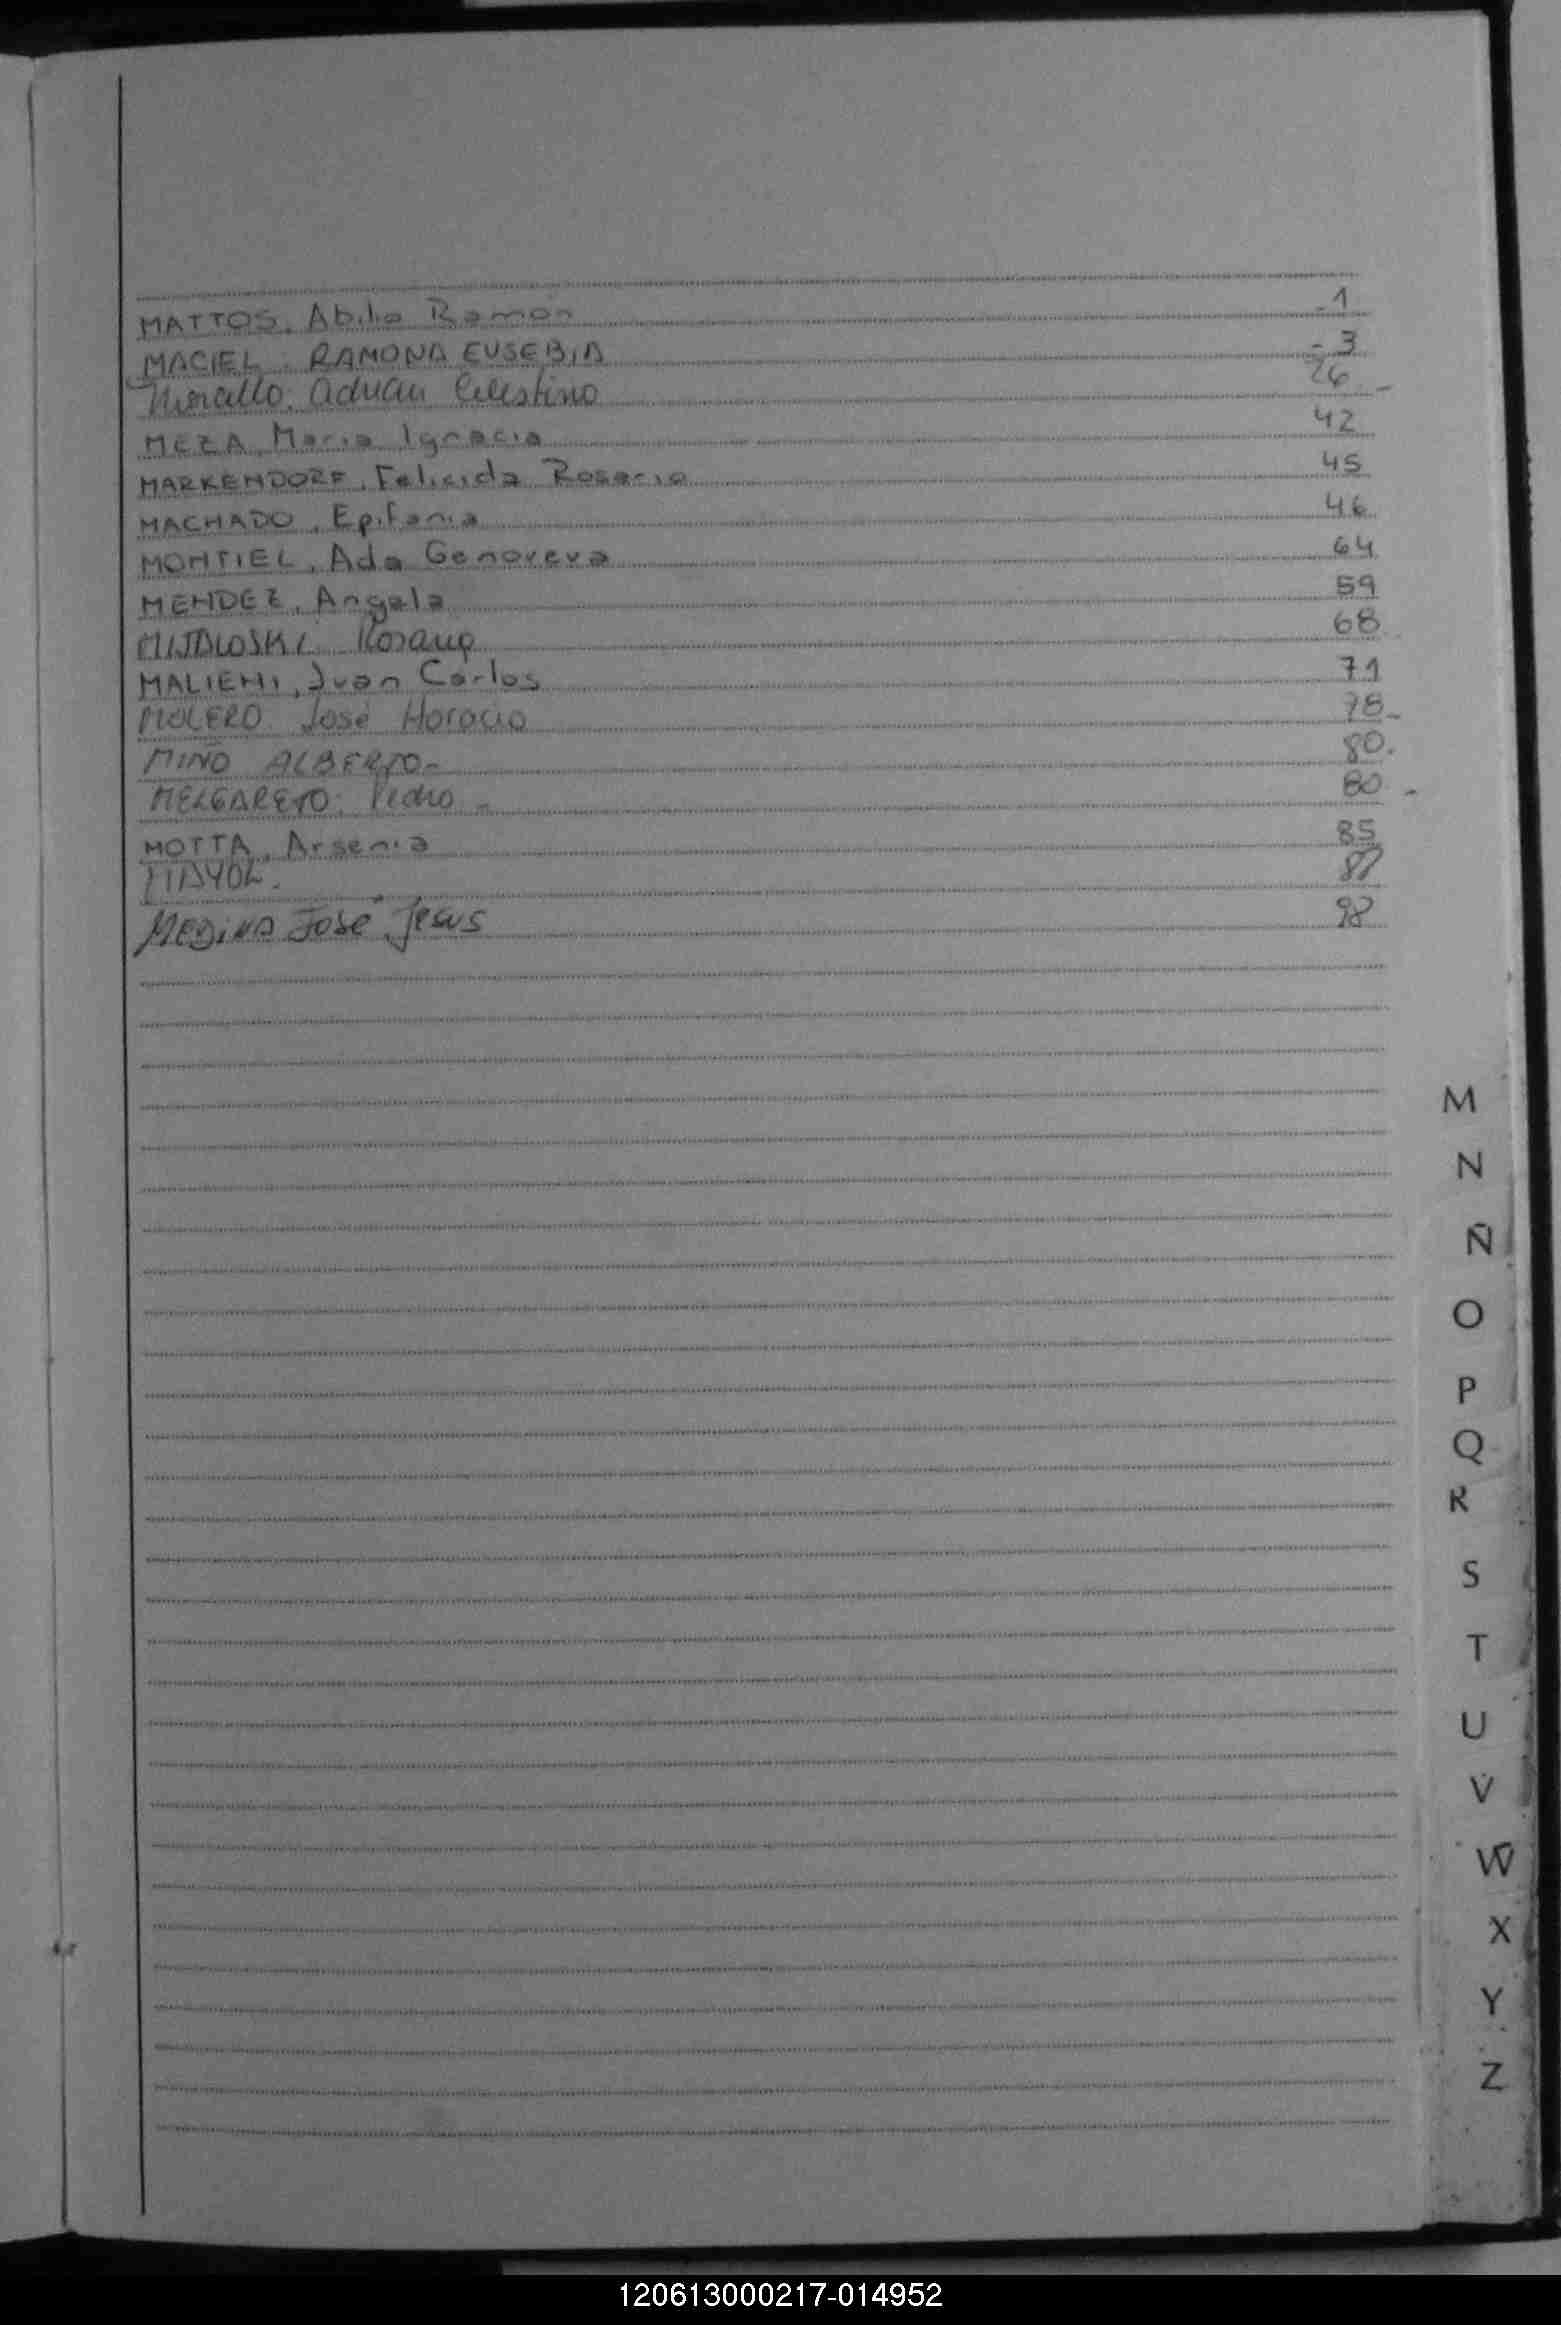 MATTOS, Abilio Ramón - 1
MACIEL, RAMONA EUSEBIA - 3
Morallo, Adrian Celestino 26 -
MEZA, Maria Ignacia 42
MARKENDORF, Felicida Rosario 45
MACHADO, Epifania 46
MONTIEL, Ada Genoveva 64
MENDEZ, Angela 59
68
MALIENI, Juan Carlos 71
MOLERO José Horacio 78 -
MIÑO ALBERTO - 80.
MELGAREJO, Pedro - 80 -
MOTTA, Arsenia 85
MAYOL.
MEDINA José Jesus 98
M
N
Ñ
O
P
Q
R
S
T
U
V
W
X
Y
Z
120613000217-014952